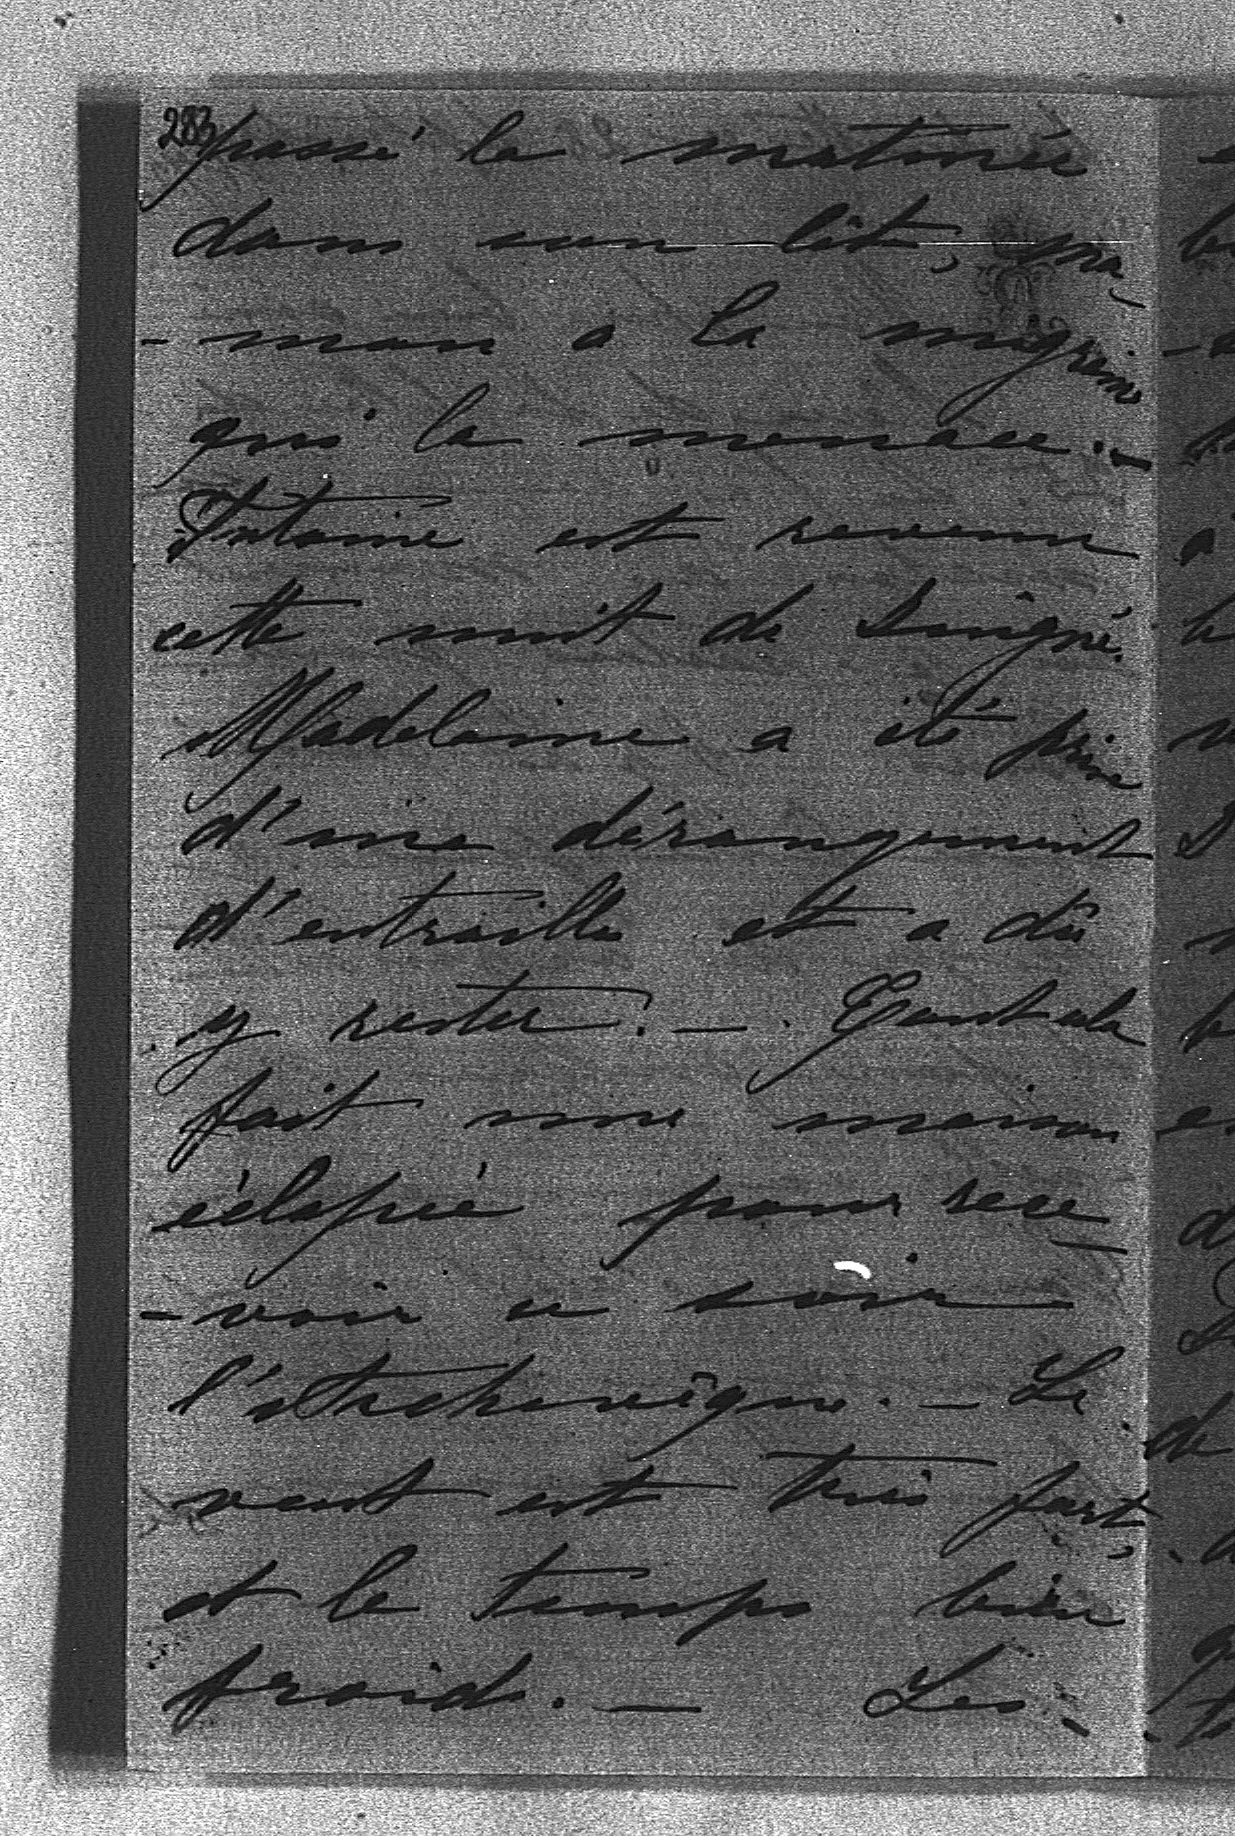 283
passé la matinée
dans son lit, ma-
-man a la migraine
qui la menace. -
Antoine est revenu
cette nuit de
Madeleine a été prise
d'une dérangement
d'entrailles et a dû
y rester. - Tout cela
fait une maison
éclopée pour rece-
-voir ce soir
l'Archevêque. - Le
vent est très fort,
et le temps bien
froid. - Les